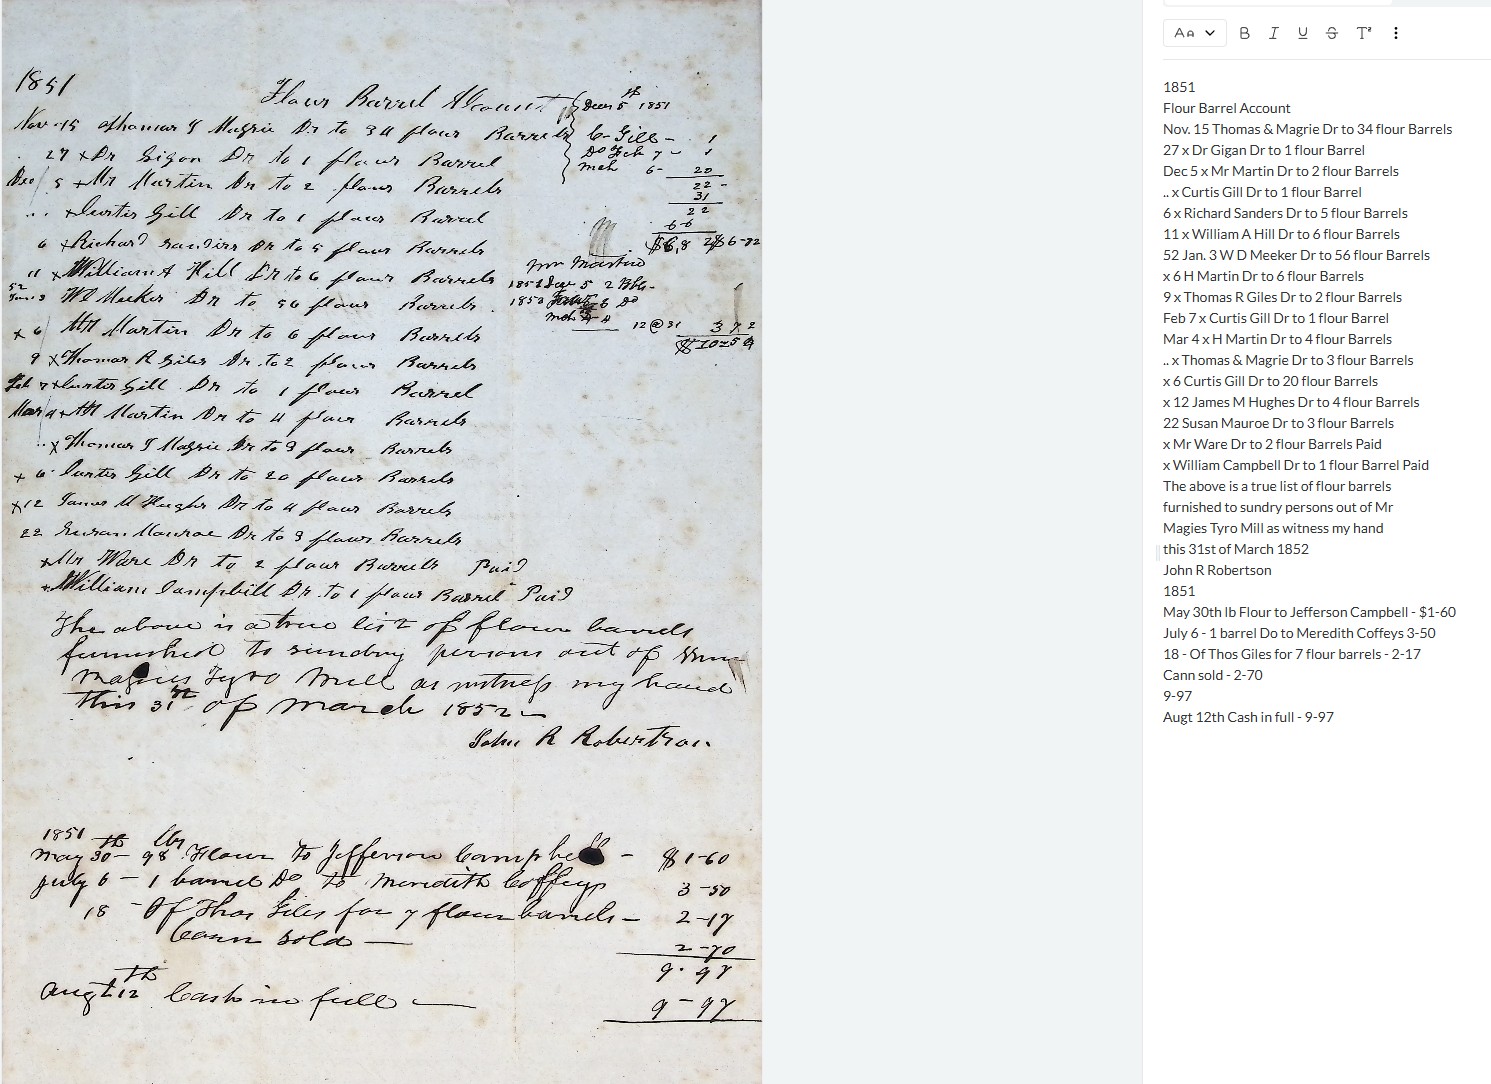 1851
Flour Barrel Account
Nov. 15 Thomas J Magrie Dr to 34 flour Barrels
27 x Dr Gigon Dr to 1 flour Barrel
Dec 5 x Mr Martin Dr to 2 flour Barrels
.. x Curtis Gill Dr to 1 flour Barrel
6 x Richard Sandirs Dr to 5 flour Barrels
11 x William A Hill Dr to 6 flour Barrels
52 Jan. 3 W D Meeker Dr to 56 flour Barrels
x 6 Mr Martin Dr to 6 flour Barrels
9 x Thomas R Giles Dr to 2 flour Barrels
Feb 7 x Curtis Gill Dr to 1 flour Barrel
Mar 4 x Mr Martin Dr to 4 flour Barrels
.. x Thomas J Magrie Dr to 3 flour Barrels
x 6 Curtis Gill Dr to 20 flour Barrels
x 12 James M Hughs Dr to 4 flour Barrels
22 Susan Monroe Dr to 3 flour Barrels
x Mr Ware Dr to 2 flour Barrels Paid
x William Campbell Dr to 1 flour Barrel Paid
The above is a true list of flour barrels
furnished to sundry persons out of
Magies Tyro Mill as witness my hand
this 31st of March 1852
John R Robertson
Decr 5th 1851
C Gill - 1
Do Feb 7 - 1
Mch 6 - 20
22 -
31
22
66
$6,82 $6-82
Mr Martin
1851 5 2 Bbls-
185 6 Do
Mch 4 - 4
12 @ 31 3 72
$10 54
1851
May 30th - 98 lbs Flour to Jefferson Campbell - $1-60
July 6 - 1 barrel Do to Meredith Coffeys 3-50
18 - Of Thos Giles for 7 flour barrels - 2-17
Corn sold - 2-70
9-97
Augt 12th Cash in full - 9-97
AA B I U S T²
1851
Flour Barrel Account
Nov. 15 Thomas & Magrie Dr to 34 flour Barrels
27 x Dr Gigan Dr to 1 flour Barrel
Dec 5 x Mr Martin Dr to 2 flour Barrels
.. x Curtis Gill Dr to 1 flour Barrel
6 x Richard Sanders Dr to 5 flour Barrels
11 x William A Hill Dr to 6 flour Barrels
52 Jan. 3 W D Meeker Dr to 56 flour Barrels
x 6 H Martin Dr to 6 flour Barrels
9 x Thomas R Giles Dr to 2 flour Barrels
Feb 7 x Curtis Gill Dr to 1 flour Barrel
Mar 4 x H Martin Dr to 4 flour Barrels
.. x Thomas & Magrie Dr to 3 flour Barrels
x 6 Curtis Gill Dr to 20 flour Barrels
x 12 James M Hughes Dr to 4 flour Barrels
22 Susan Mauroe Dr to 3 flour Barrels
x Mr Ware Dr to 2 flour Barrels Paid
x William Campbell Dr to 1 flour Barrel Paid
The above is a true list of flour barrels
furnished to sundry persons out of Mr
Magies Tyro Mill as witness my hand
this 31st of March 1852
John R Robertson
1851
May 30th lb Flour to Jefferson Campbell - $1-60
July 6 - 1 barrel Do to Meredith Coffeys 3-50
18 - Of Thos Giles for 7 flour barrels - 2-17
Cann sold - 2-70
9-97
Augt 12th Cash in full - 9-97